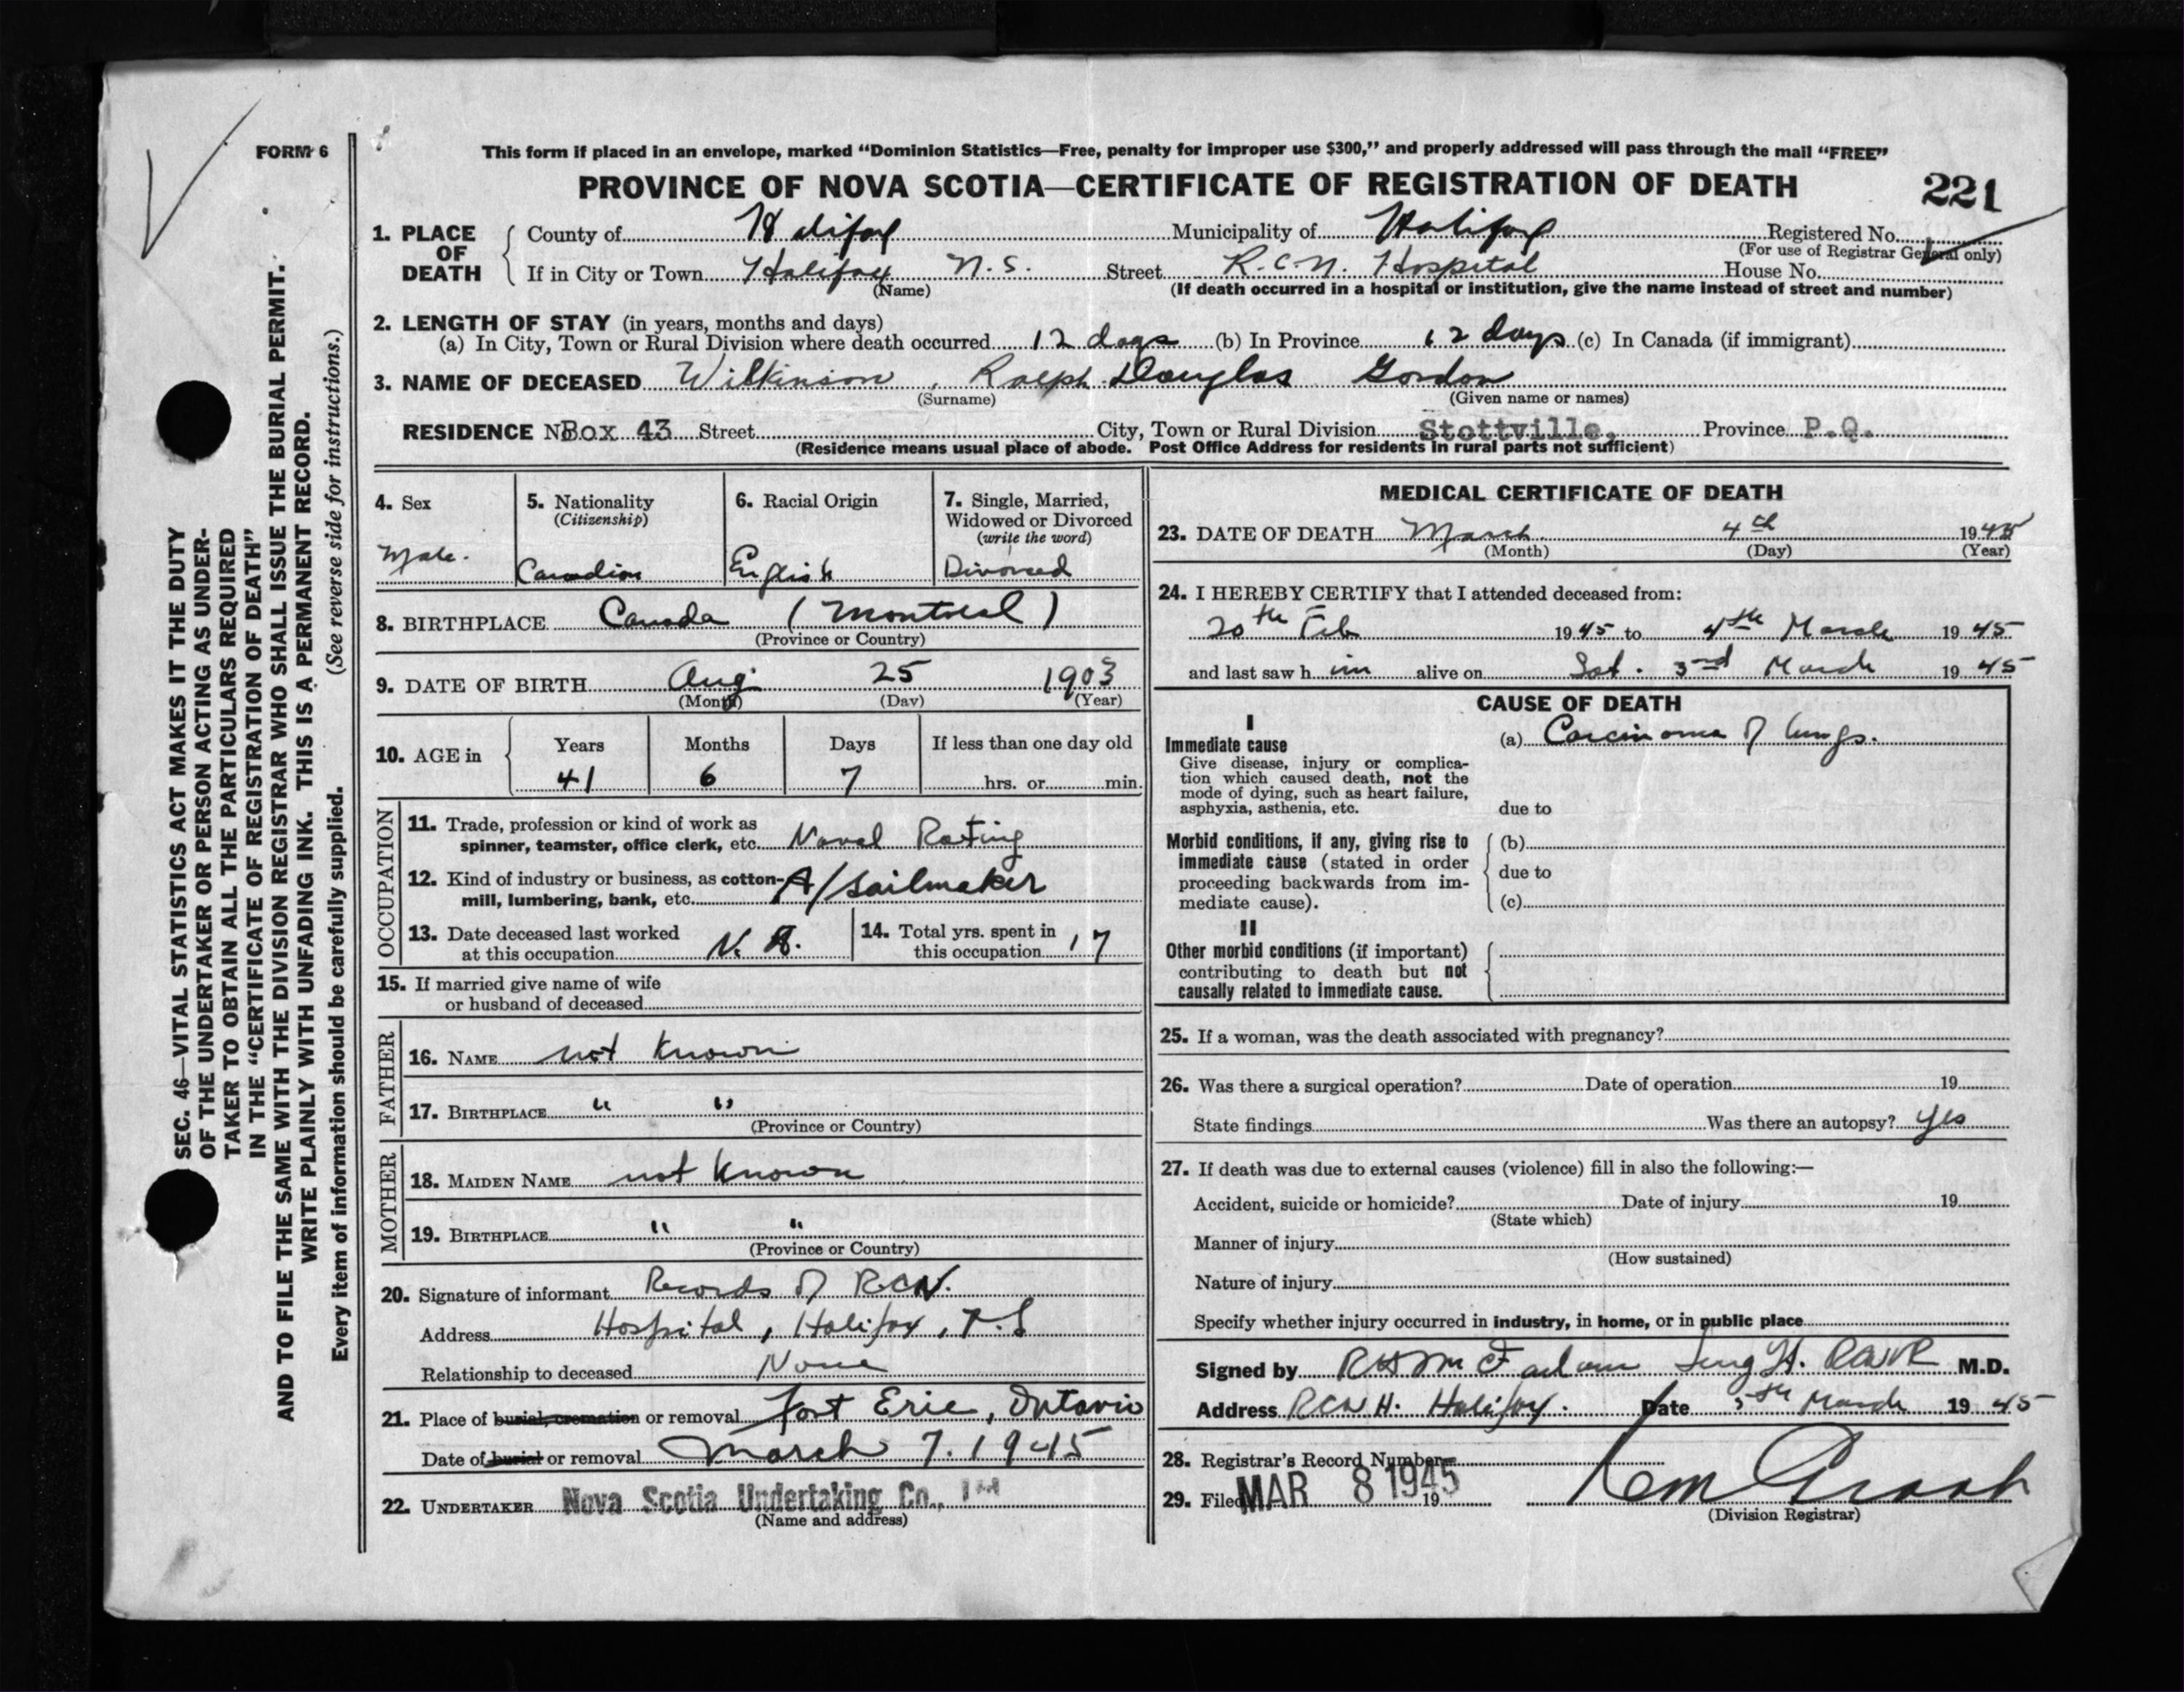 FORM 6
This form if placed in an envelope, marked “Dominion Statistics—Free, penalty for improper use $300,” and properly addressed will pass through the mail “FREE”
PROVINCE OF NOVA SCOTIA—CERTIFICATE OF REGISTRATION OF DEATH
221
1. PLACE OF DEATH
County of Halifax Municipality of Halifax Registered No.
(For use of Registrar General only)
If in City or Town Halifax N.S. Street R.C.N. Hospital House No.
(Name) (If death occurred in a hospital or institution, give the name instead of street and number)
2. LENGTH OF STAY (in years, months and days)
(a) In City, Town or Rural Division where death occurred 12 days (b) In Province 12 days (c) In Canada (if immigrant)
3. NAME OF DECEASED Wilkinson, Ralph Douglas Gordon
(Surname) (Given name or names)
RESIDENCE N Box 43 Street City, Town or Rural Division Stottville, Province P.Q.
(Residence means usual place of abode. Post Office Address for residents in rural parts not sufficient)
4. Sex
Male.
5. Nationality
(Citizenship)
Canadian
6. Racial Origin
English
7. Single, Married,
Widowed or Divorced
(write the word)
Divorced
8. BIRTHPLACE Canada (Montreal)
(Province or Country)
9. DATE OF BIRTH Aug 25 1903
(Month) (Day) (Year)
10. AGE in
Years Months Days If less than one day old
41 6 7 hrs. or min.
OCCUPATION
11. Trade, profession or kind of work as
spinner, teamster, office clerk, etc. Naval Rating
12. Kind of industry or business, as cotton-
mill, lumbering, bank, etc. A/Sailmaker
13. Date deceased last worked
at this occupation
14. Total yrs. spent in
this occupation 17
15. If married give name of wife
or husband of deceased
FATHER
16. NAME not known
17. BIRTHPLACE " "
(Province or Country)
MOTHER
18. MAIDEN NAME not known
19. BIRTHPLACE " "
(Province or Country)
20. Signature of informant Records of RCN.
Address Hospital, Halifax, N.S
Relationship to deceased None
21. Place of burial, cremation or removal Fort Erie, Ontario
Date of burial or removal March 7. 1945
22. UNDERTAKER Nova Scotia Undertaking Co., Ltd
(Name and address)
MEDICAL CERTIFICATE OF DEATH
23. DATE OF DEATH March 4th 1945
(Month) (Day) (Year)
24. I HEREBY CERTIFY that I attended deceased from:
20th Feb 1945 to 4th March 1945
and last saw him alive on Sat. 3rd March 1945
CAUSE OF DEATH
I
Immediate cause
Give disease, injury or complica-
tion which caused death, not the
mode of dying, such as heart failure,
asphyxia, asthenia, etc.
(a) Carcinoma of lungs.
due to
Morbid conditions, if any, giving rise to
immediate cause (stated in order
proceeding backwards from im-
mediate cause).
(b)
due to
(c)
II
Other morbid conditions (if important)
contributing to death but not
causally related to immediate cause.
25. If a woman, was the death associated with pregnancy?
26. Was there a surgical operation? Date of operation 19
State findings Was there an autopsy? yes
27. If death was due to external causes (violence) fill in also the following:—
Accident, suicide or homicide? Date of injury 19
(State which)
Manner of injury
(How sustained)
Nature of injury
Specify whether injury occurred in industry, in home, or in public place
Signed by RCNVR M.D.
Address RCNH. Halifax. Date 5th March 1945
28. Registrar's Record Number
29. Filed MAR 8 1945 19
(Division Registrar)
SEC. 46—VITAL STATISTICS ACT MAKES IT THE DUTY
OF THE UNDERTAKER OR PERSON ACTING AS UNDER-
TAKER TO OBTAIN ALL THE PARTICULARS REQUIRED
IN THE “CERTIFICATE OF REGISTRATION OF DEATH”
AND TO FILE THE SAME WITH THE DIVISION REGISTRAR WHO SHALL ISSUE THE BURIAL PERMIT.
WRITE PLAINLY WITH UNFADING INK. THIS IS A PERMANENT RECORD.
Every item of information should be carefully supplied. (See reverse side for instructions.)